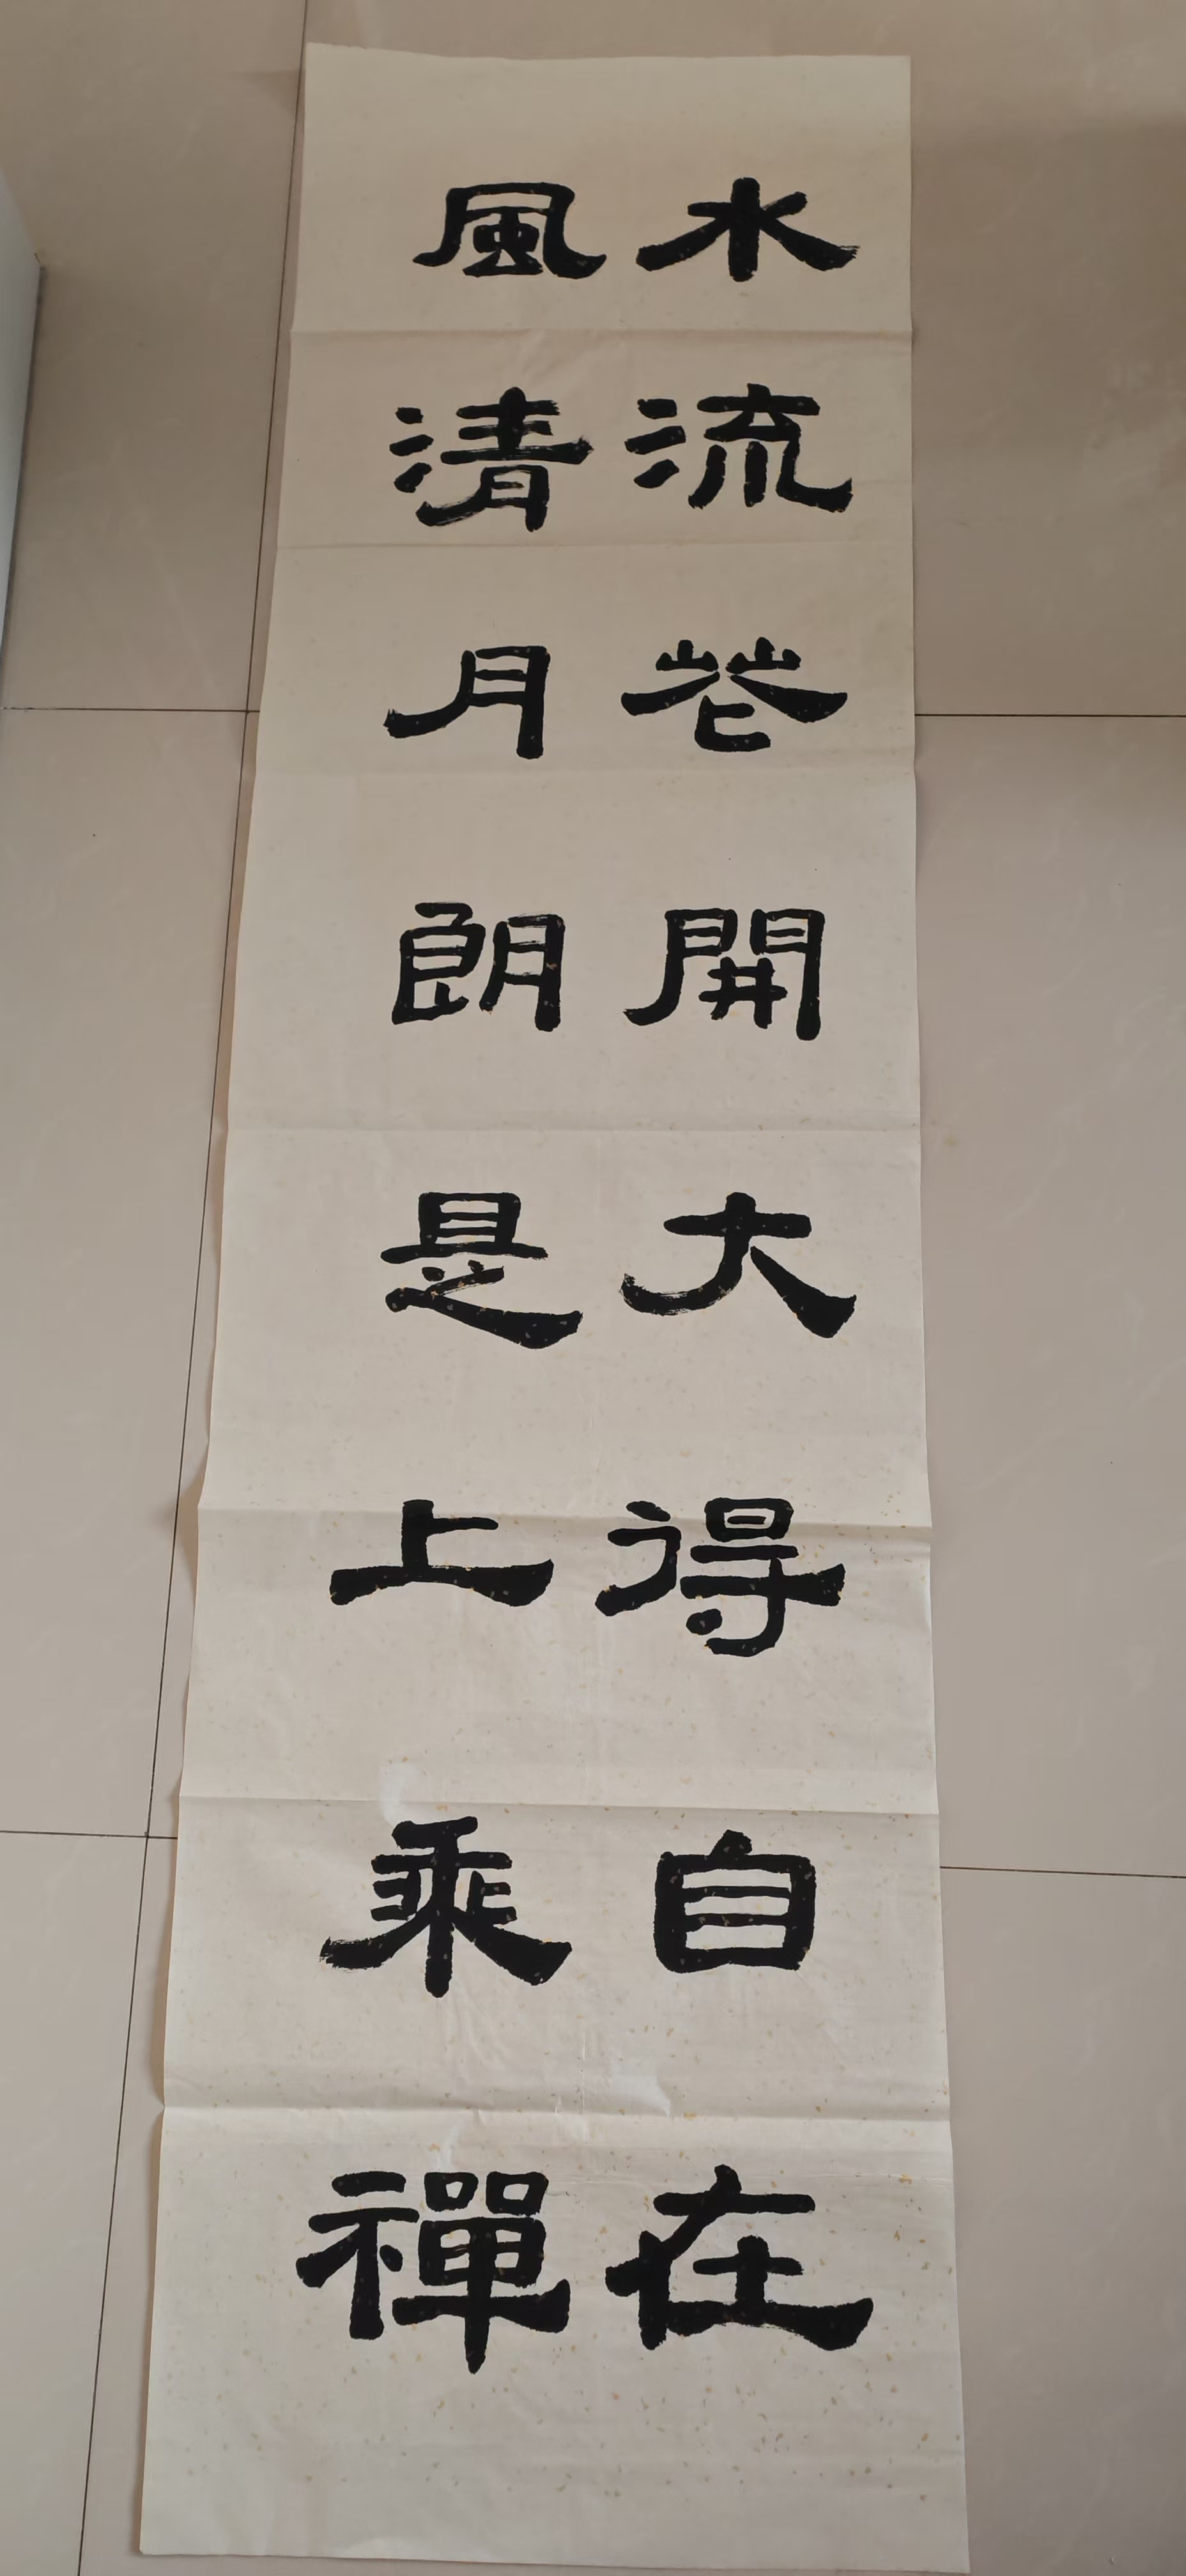 水流花開大得自在
風清月朗是上乘禪